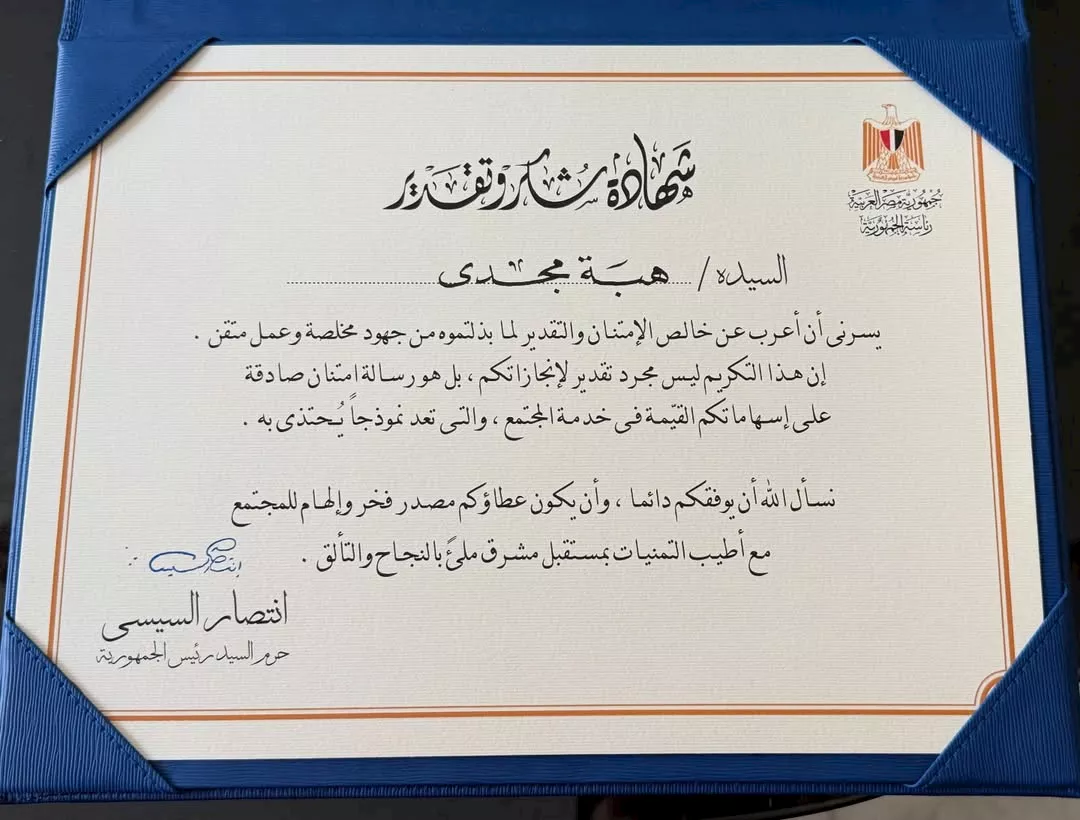 جمهورية مصر العربية
رئاسة الجمهورية
شهادة شكر وتقدير
السيده / هبة مجدى
يسرنى أن أعرب عن خالص الإمتنان والتقدير لما بذلتموه من جهود مخلصة وعمل متقن .
إن هذا التكريم ليس مجرد تقدير لإنجازاتكم ، بل هو رسالة امتنان صادقة
على إسهاماتكم القيّمة فى خدمة المجتمع ، والتى تعد نموذجاً يُحتذى به .
نسأل الله أن يوفقكم دائما ، وأن يكون عطاؤكم مصدر فخر وإلهام للمجتمع
مع أطيب التمنيات بمستقبل مشرق ملئً بالنجاح والتألق .
انتصار السيسى
انتصار السيسى
حرم السيد رئيس الجمهورية